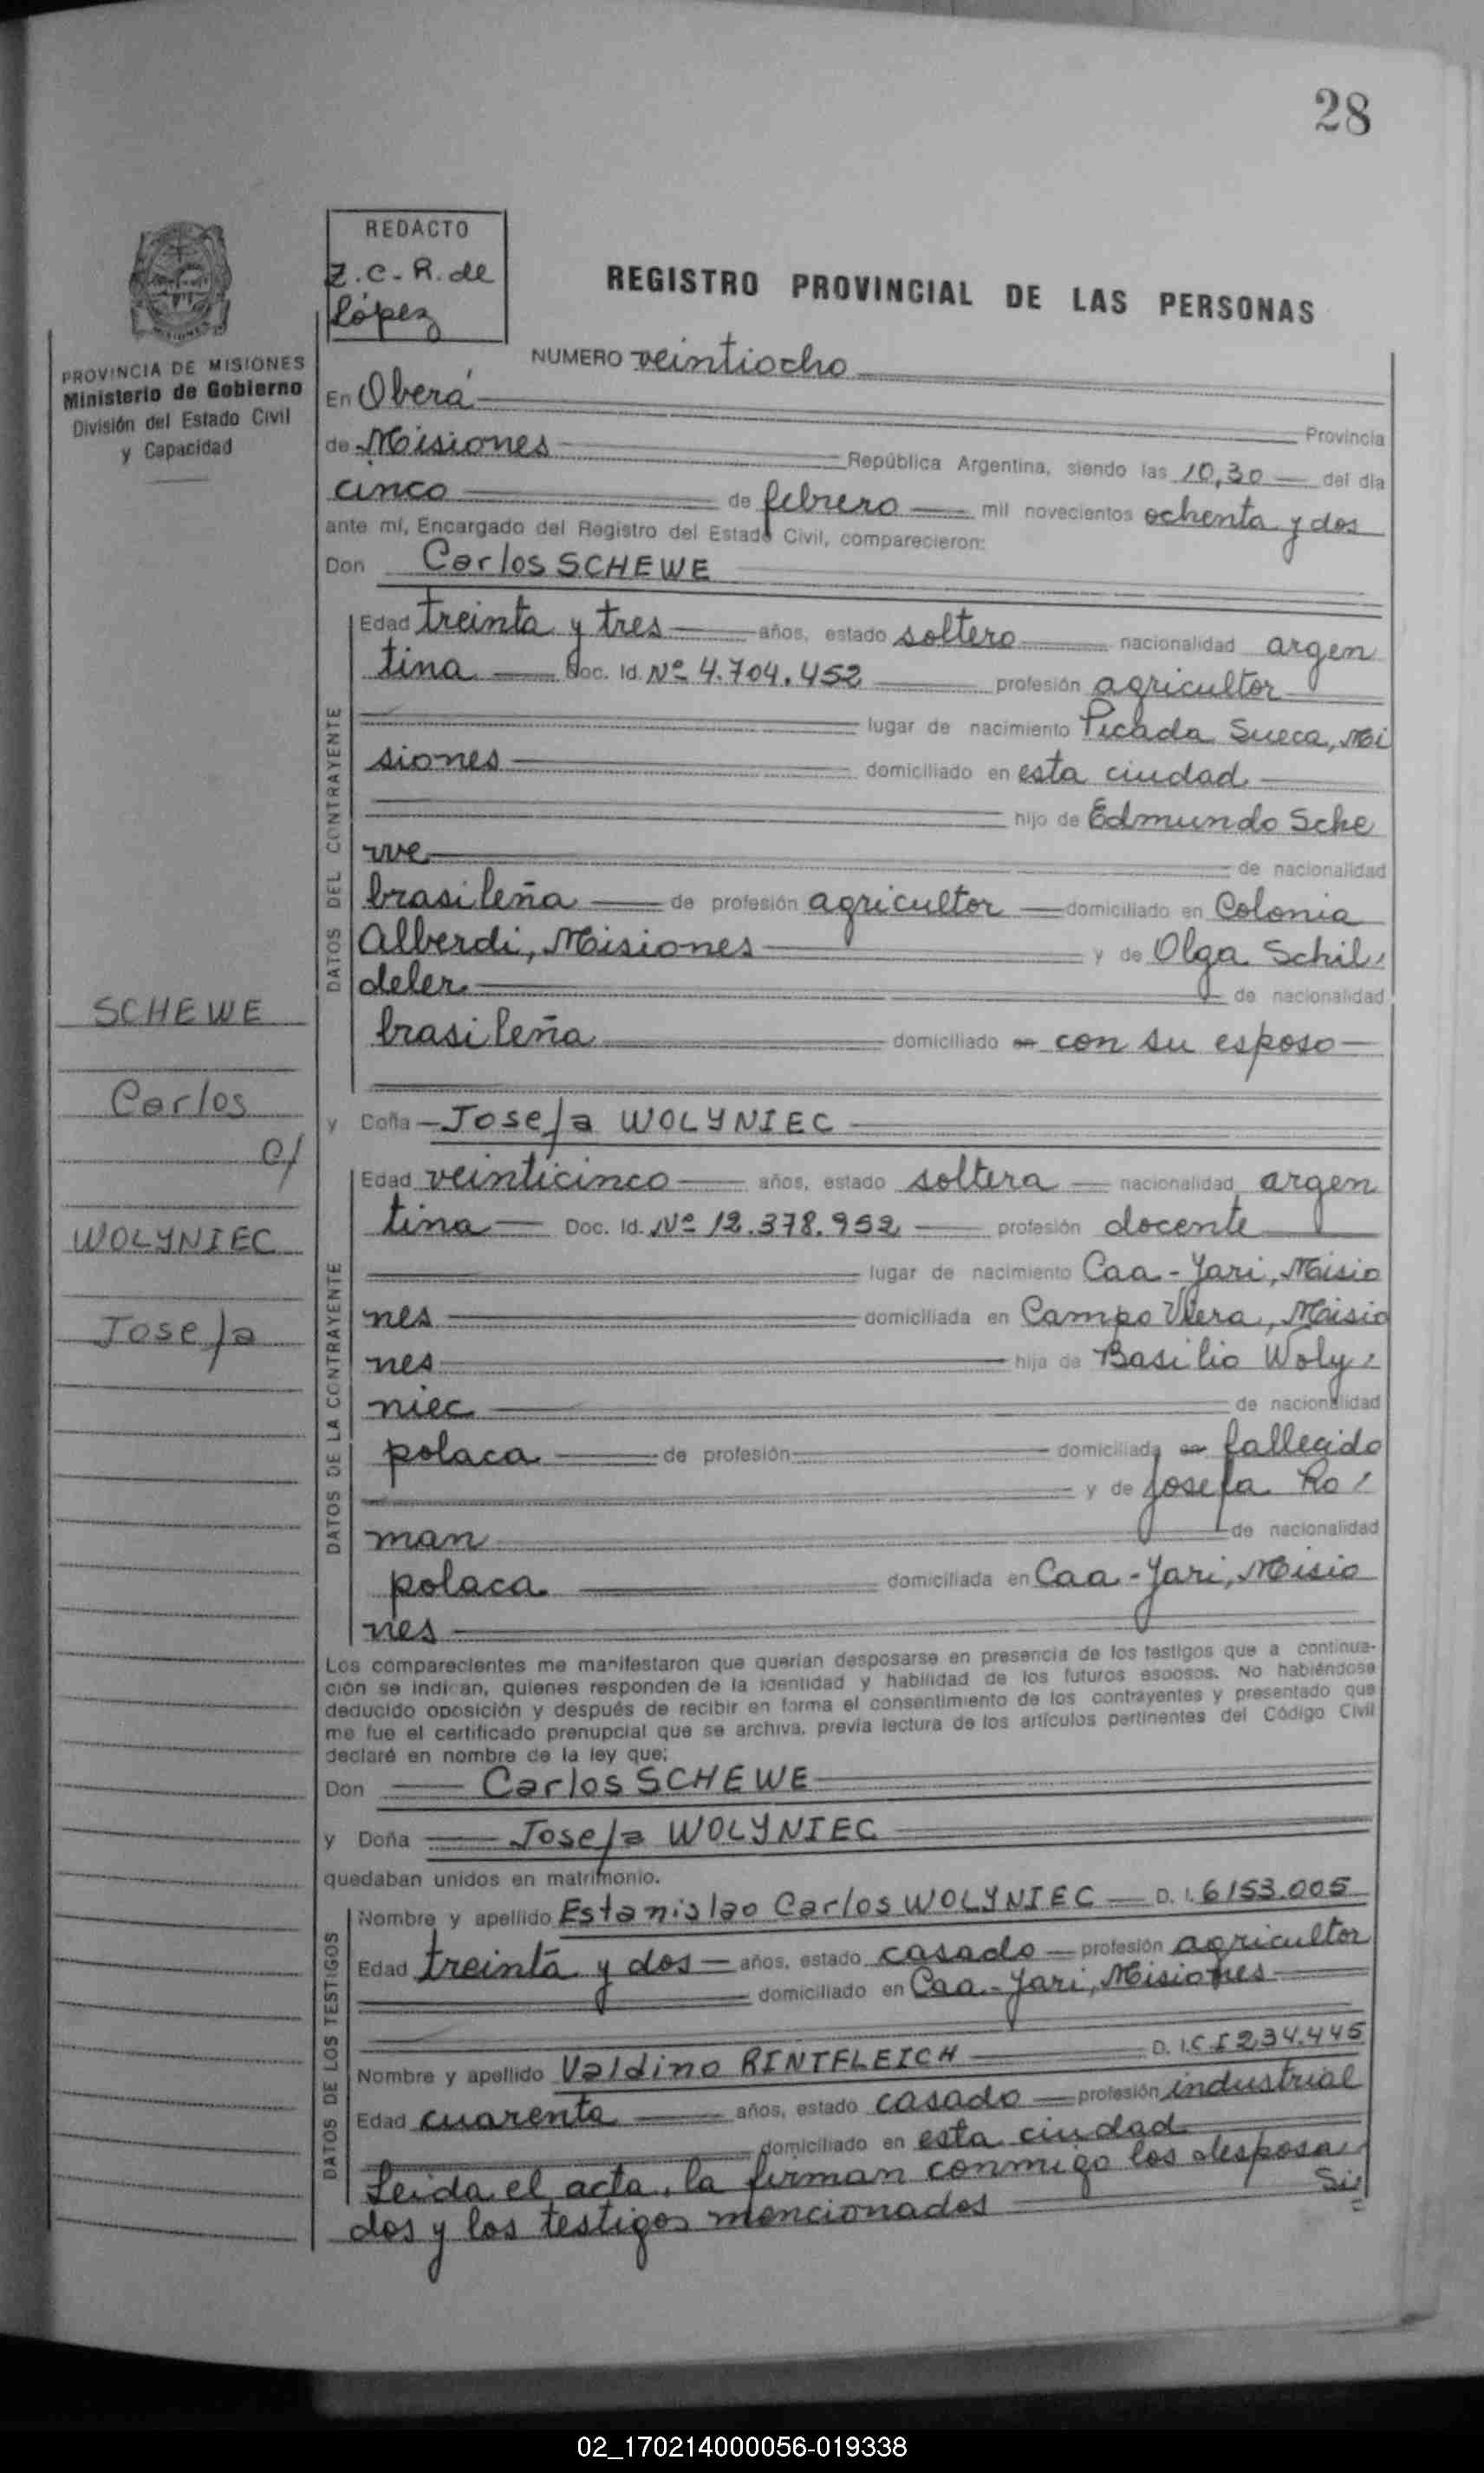 28
REDACTO
Z.C-R.de
López
REGISTRO PROVINCIAL DE LAS PERSONAS
PROVINCIA DE MISIONES
Ministerio de Gobierno
División del Estado Civil
y Capacidad
NUMERO veintiocho
En Oberá
Provincia
de Misiones República Argentina, siendo las 10,30 del día
cinco de febrero mil novecientos ochenta y dos
ante mí, Encargado del Registro del Estado Civil, comparecieron:
Don Carlos SCHEWE
DATOS DEL CONTRAYENTE
Edad treinta y tres años, estado soltero nacionalidad argen
tina Doc. Id. Nº 4.704.452 profesión agricultor
lugar de nacimiento Picada Sueca, Mi
siones domiciliado en esta ciudad
hijo de Edmundo Sche
we de nacionalidad
brasileña de profesión agricultor domiciliado en Colonia
Alberdi, Misiones y de Olga Schil
deler de nacionalidad
brasileña domiciliado en con su esposo
SCHEWE
Carlos
c/
WOLYNIEC
Josefa
y Doña Josefa WOLYNIEC
DATOS DE LA CONTRAYENTE
Edad veinticinco años, estado soltera nacionalidad argen
tina Doc. Id. Nº 12.378.952 profesión docente
lugar de nacimiento Caa-Yari, Misio
nes domiciliada en Campo Viera, Misio
nes hija de Basilio Woly
niec de nacionalidad
polaca de profesión domiciliada en fallecido
y de Josefa Ro
man de nacionalidad
polaca domiciliada en Caa-Yari, Misio
nes
Los comparecientes me manifestaron que querían desposarse en presencia de los testigos que a continua-
ción se indican, quienes responden de la identidad y habilidad de los futuros esposos. No habiéndose
deducido oposición y después de recibir en forma el consentimiento de los contrayentes y presentado que
me fue el certificado prenupcial que se archiva, previa lectura de los artículos pertinentes del Código Civil
declaré en nombre de la ley que:
Don Carlos SCHEWE
y Doña Josefa WOLYNIEC
quedaban unidos en matrimonio.
DATOS DE LOS TESTIGOS
Nombre y apellido Estanislao Carlos WOLYNIEC D. I. 6153.005
Edad treinta y dos años, estado casado profesión agricultor
domiciliado en Caa-Yari, Misiones
Nombre y apellido Valdino RINTFLEICH D. I. C I 234.445
Edad cuarenta años, estado casado profesión industrial
domiciliado en esta ciudad
Leida el acta, la firman conmigo los desposa
dos y los testigos mencionados
02_170214000056-019338